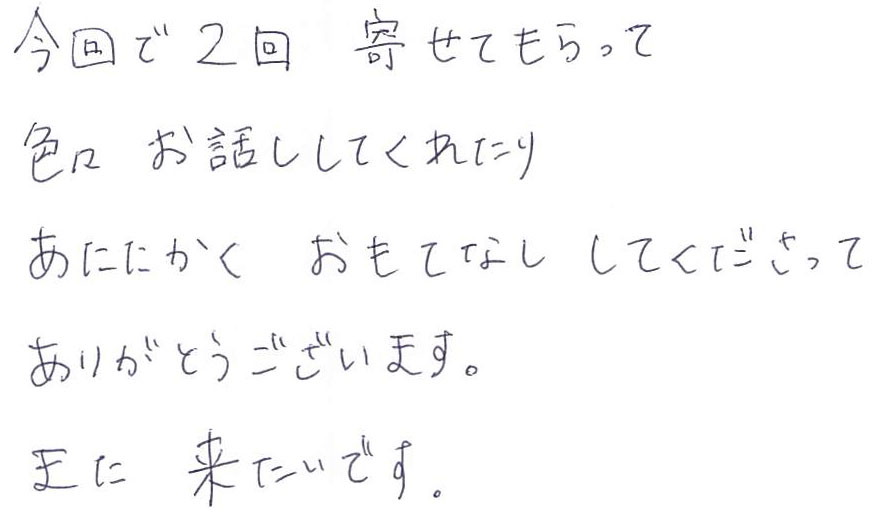 今回で2回 寄せてもらって
色々 お話ししてくれたり
あたたかく おもてなし してくださって
ありがとうございます。
また 来たいです。